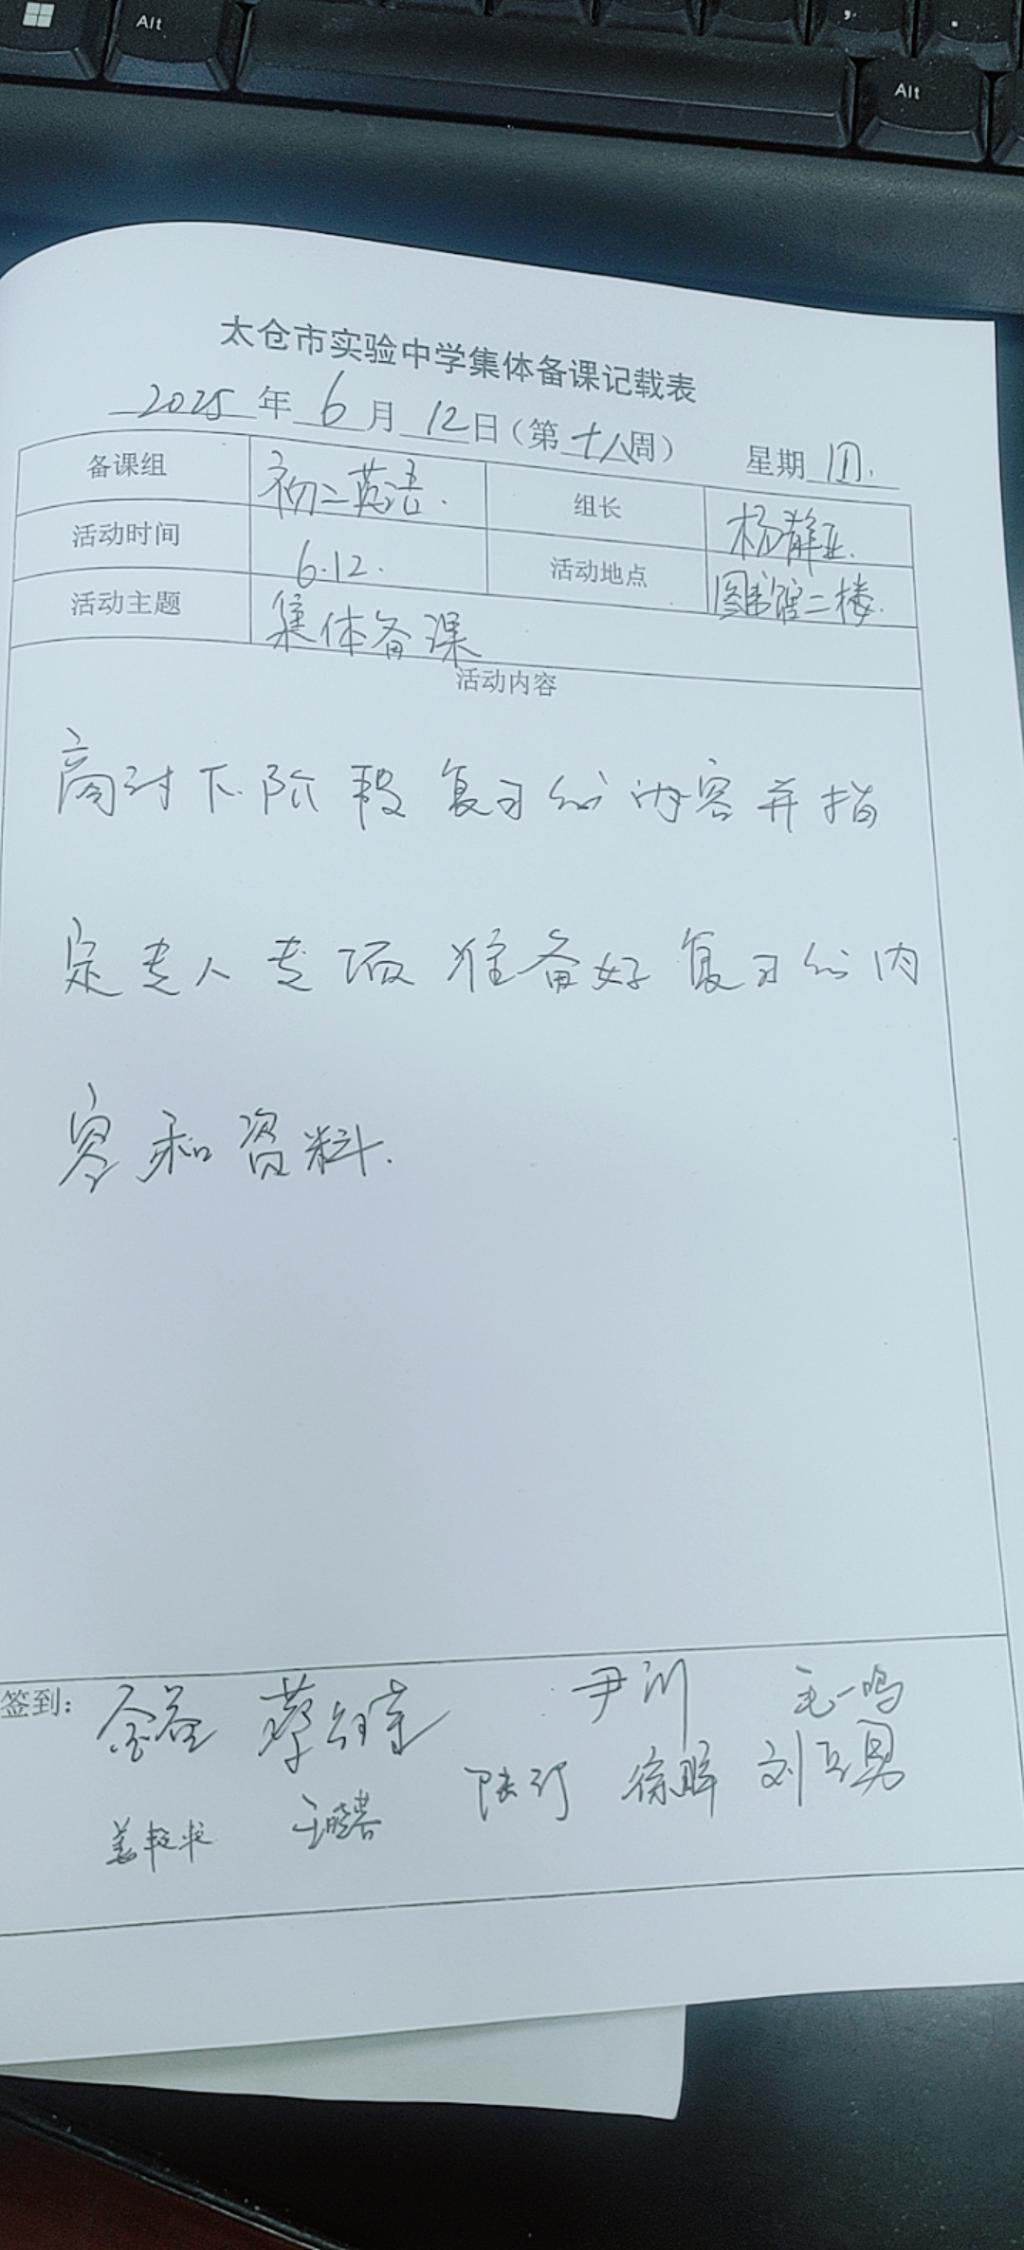 Alt
Alt
太仓市实验中学集体备课记载表
2025年6月12日（第十八周） 星期四.
备课组 初二英语. 组长 杨静亚.
活动时间 6.12. 活动地点 图书馆二楼.
活动主题 集体备课
活动内容
商讨下阶段复习的内容并指
定专人专项准备好复习的内
容和资料.
签到： 金益 尹川 毛一鸣
陆订 徐晖